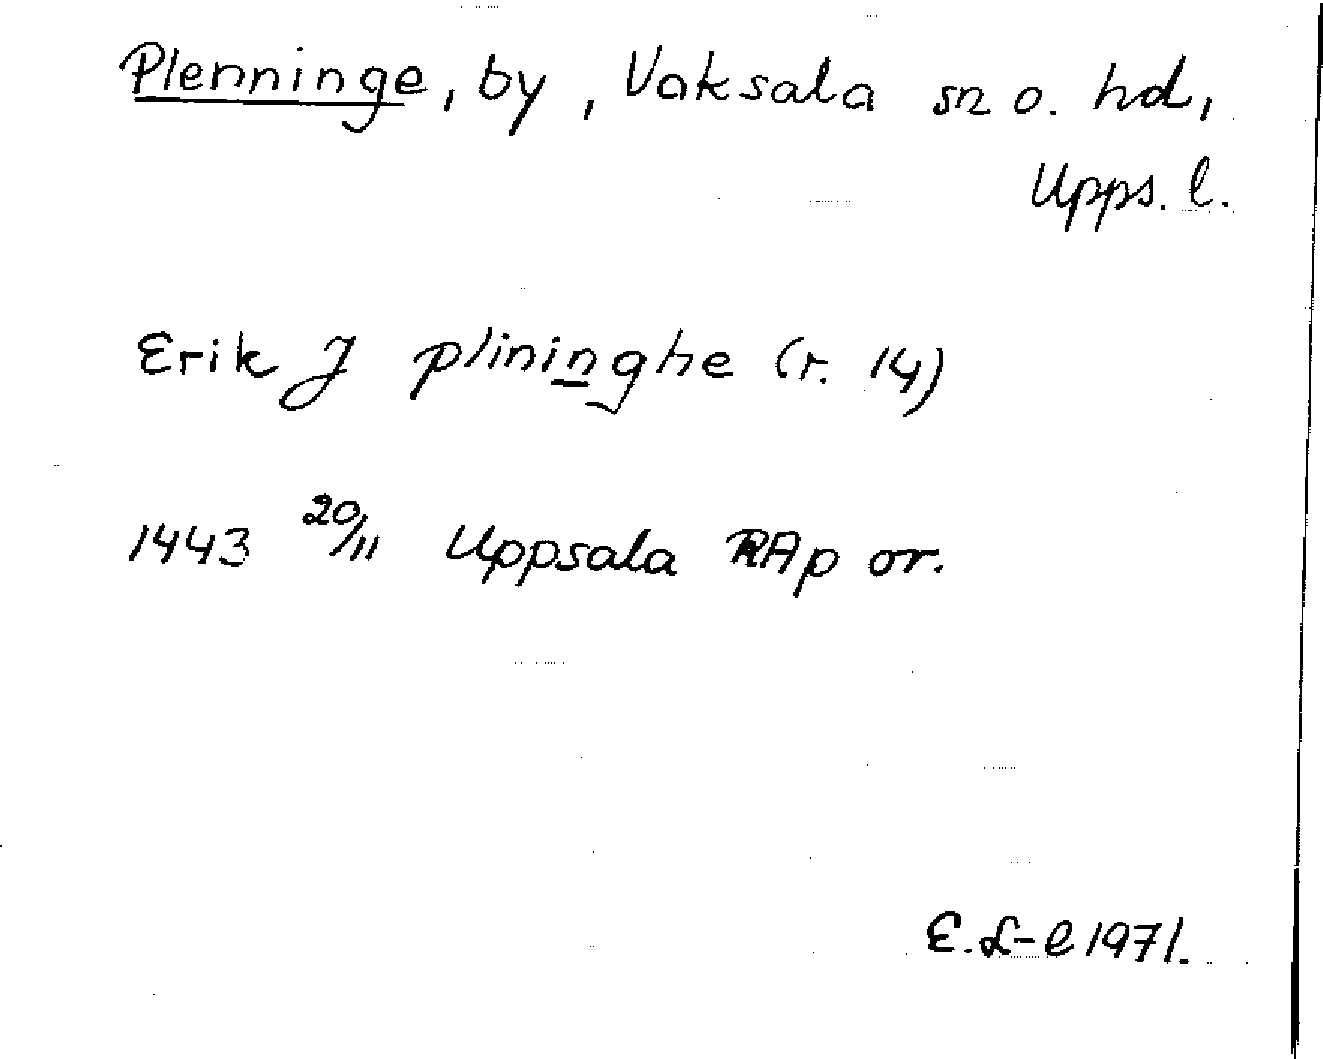 Plenninge, by, Vaksala sn o. hd,
Upps. l.
Erik J plininghe (r. 14)
1443 20/11 Uppsala RAp or.
E. L-e 1971.